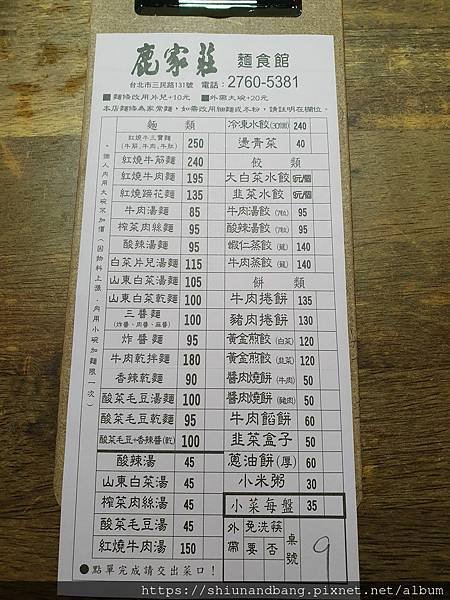 鹿家莊 麵食館
台北市三民路131號 電話：2760-5381
■麵條改用片兒+10元 ■外帶大碗+20元
本店麵條為家常麵，如需改用細麵或冬粉，請註明在欄位。
麵 類
紅燒牛三寶麵(牛筋、牛肉、牛肚) 250
紅燒牛筋麵 240
紅燒牛肉麵 195
紅燒蹄花麵 135
牛肉湯麵 85
榨菜肉絲麵 95
酸辣湯麵 95
白菜片兒湯麵 115
山東白菜湯麵 105
山東白菜乾麵 100
三醬麵(炸醬、肉醬、麻醬) 100
炸醬麵 95
牛肉乾拌麵 180
香辣乾麵 90
酸菜毛豆湯麵 100
酸菜毛豆乾麵 95
酸菜毛豆+香辣醬(乾) 100
酸辣湯 45
山東白菜湯 45
榨菜肉絲湯 45
酸菜毛豆湯 45
紅燒牛肉湯 150
冷凍水餃(30個) 240
燙青菜 40
餃 類
大白菜水餃
韭菜水餃
牛肉湯餃(7粒) 95
酸辣湯餃(7粒) 95
蝦仁蒸餃(籠) 140
牛肉蒸餃(籠) 140
餅 類
牛肉捲餅 135
豬肉捲餅 130
黃金煎餃(白菜) 120
黃金煎餃(韭菜) 120
醬肉燒餅(牛肉) 50
醬肉燒餅(豬肉) 50
牛肉餡餅 60
韭菜盒子 50
蔥油餅(厚) 60
小米粥 30
小菜每盤 35
外帶 免洗筷 要 否 桌號 9
•個人內用大碗不加價（因物料上漲，內用小碗加麵限一次）
●點單完成請交出菜口！
https://shiunandbang.pixnet.net/album